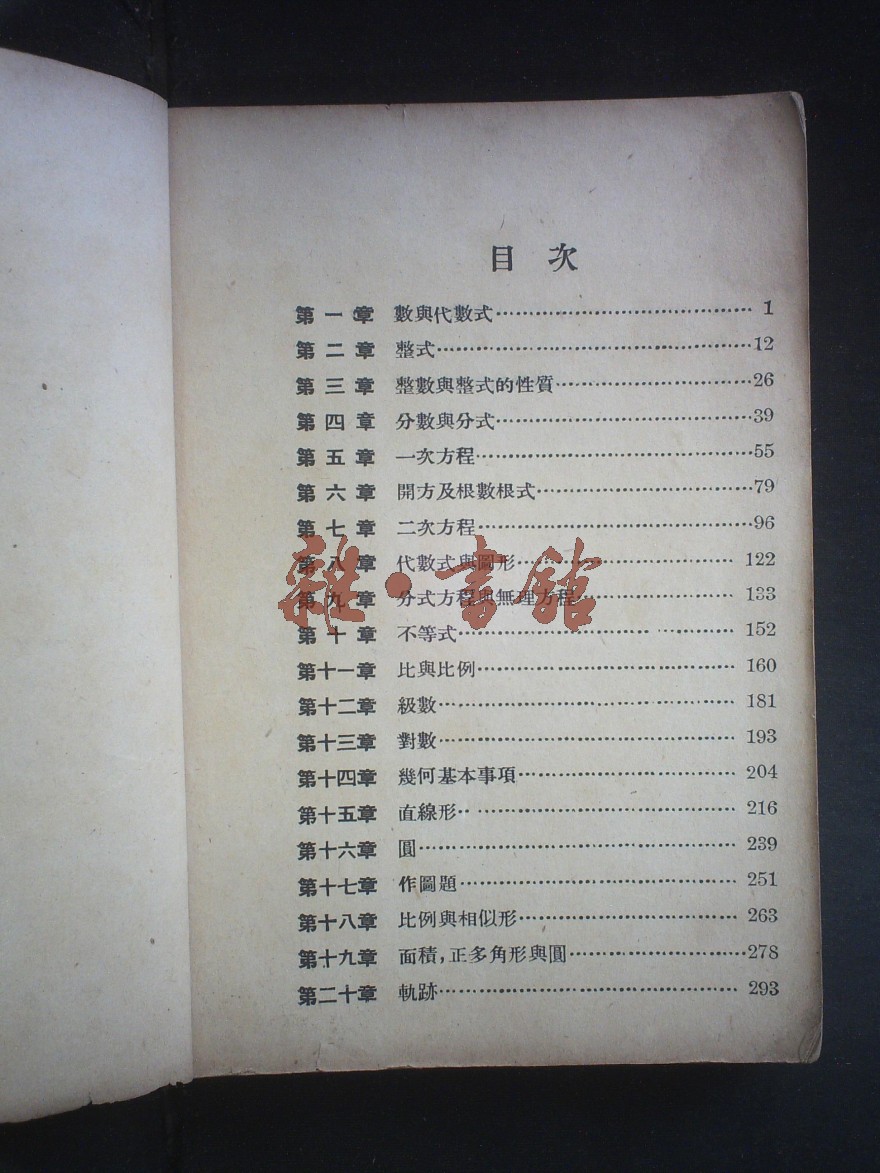 目次
第一章 數與代數式……1
第二章 整式……12
第三章 整數與整式的性質……26
第四章 分數與分式……39
第五章 一次方程……55
第六章 開方及根數根式……79
第七章 二次方程……96
第八章 代數式與圖形……122
第九章 分式方程與無理方程……133
第十章 不等式……152
第十一章 比與比例……160
第十二章 級數……181
第十三章 對數……193
第十四章 幾何基本事項……204
第十五章 直線形……216
第十六章 圓……239
第十七章 作圖題……251
第十八章 比例與相似形……263
第十九章 面積,正多角形與圓……278
第二十章 軌跡……293
雜·書館